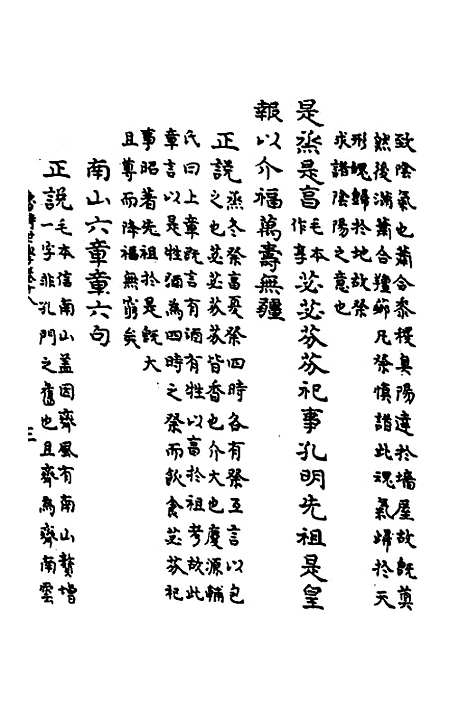 致陰氣也蕭合黍稷臭陽達於墻屋故既奠
然後焫蕭合羶薌凡祭慎諸此魂氣歸於天
形魄歸於地故祭
求諸陰陽之意也
是烝是亯毛本作享苾苾芬芬祀事孔明先祖是皇
報以介福萬壽無疆
正説烝冬祭亯夏祭四時各有祭互言以包
之也苾苾芬芬皆香也介大也慶源輔
氏曰上章既言有酒有牲以亯於祖考故此
章言以是牲酒為四時之祭而飲食苾芬祀
事昭著先祖於是既大
且尊而降福無窮矣
南山六章章六句
正説毛本信南山蓋因齊風有南山贅增
一字非孔門之舊也且齊為齊南雲
三